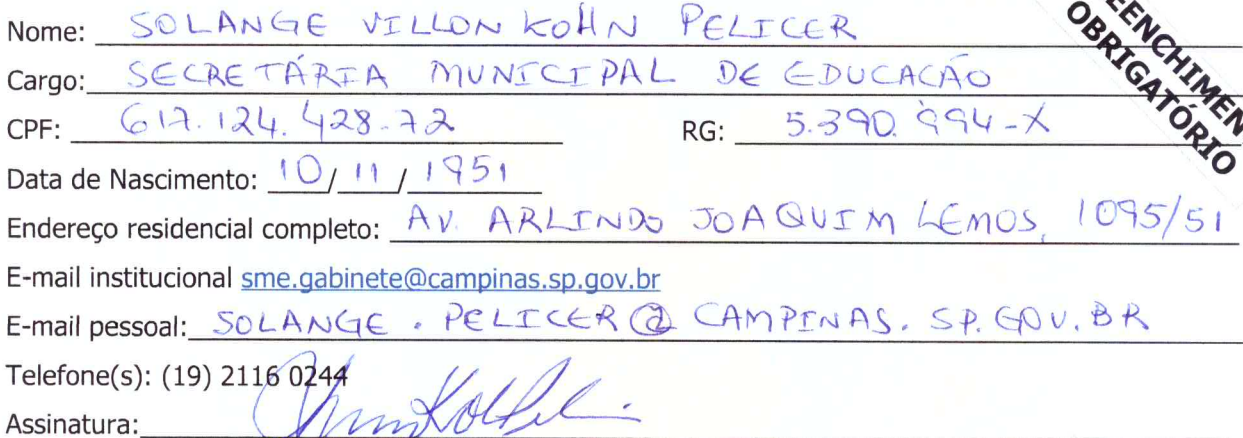 Nome: SOLANGE VILLON KOHN PELICER
Cargo: SECRETÁRIA MUNICIPAL DE EDUCAÇÃO
CPF: 617.124.428-72 RG: 5.390.994-X
Data de Nascimento: 10/11/1951
Endereço residencial completo: AV. ARLINDO JOAQUIM LEMOS, 1095/51
E-mail institucional sme.gabinete@campinas.sp.gov.br
E-mail pessoal: SOLANGE.PELICER@CAMPINAS.SP.GOV.BR
Telefone(s): (19) 2116 0244
Assinatura:
OBRIGATÓRIO